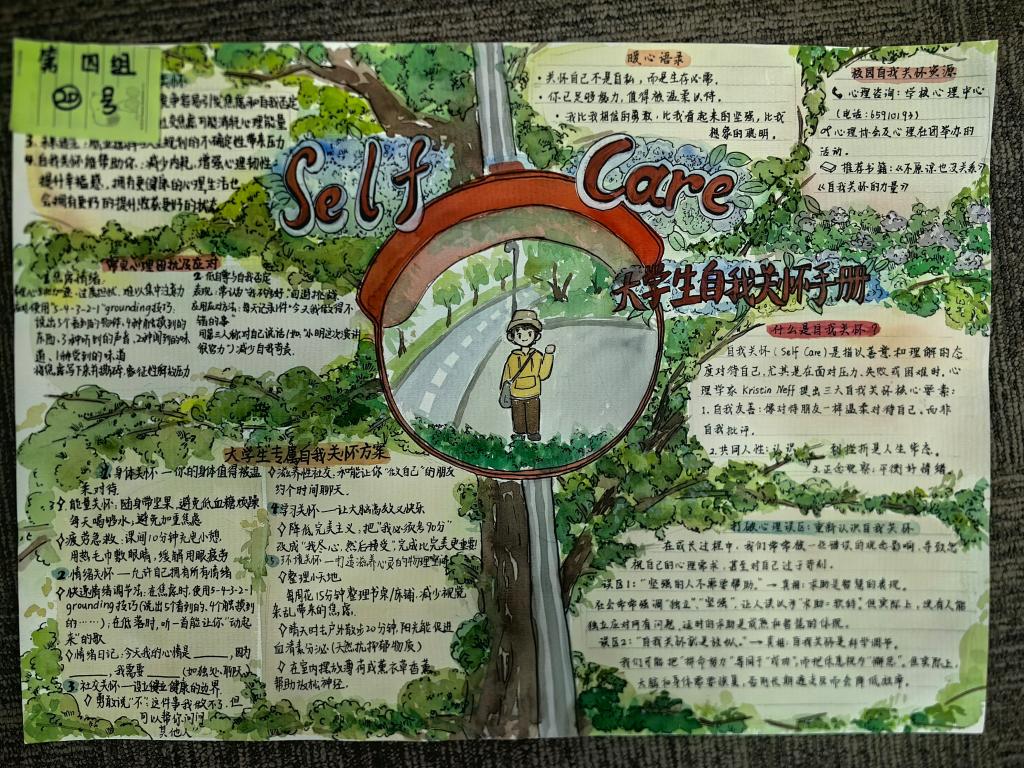 第四组
25号
怀
竞争容易引发焦虑和自我否定
社交焦虑可能消耗心理能量
规划的不确定性带来压力
4. 自我关怀能帮助你:减少内耗,增强心理韧性
提升幸福感,拥有更健康的心理生活也
会拥有更好的提升效率更好的状态
Self Care
大学生自我关怀手册
暖心语录
· 关怀自己不是自私,而是生存必需。
· 你已足够努力,值得被温柔以待。
· 我比我相信的勇敢,比我看起来的坚强,比我
想象的聪明。
校园自我关怀资源
心理咨询:学校心理中心
(电话:65910193)
心理协会及心理社团举办的
活动。
推荐书籍:《不原谅也没关系》
《自我关怀的力量》
常见心理困扰及应对
1. 焦虑情绪
心跳加速、过度担忧、难以集中注意力
使用"5-4-3-2-1"grounding技巧:
说出5个看到的物体,4种触摸到的
东西,3种听到的声音,2种闻到的味
道、1种尝到的味道
将焦虑写下来并撕碎,象征性释放压力
2. 低自尊与自我否定
表现:常认为"我不够好",回避挑战
应对方法:每天记录1件"今天我做得不
错的事"
用第三人称对自己说话(如"小明这次演讲
很努力")减少自我苛责。
什么是自我关怀?
自我关怀(Self Care)是指以善意和理解的态
度对待自己,尤其是在面对压力、失败或困难时。心
理学家Kristin Neff提出三大自我关怀核心要素:
1. 自我友善:像对待朋友一样温柔对待自己,而非
自我批评。
2. 共同人性:认识 挫折是人生常态。
3. 正念觉察:平衡对情绪
大学生专属自我关怀方案
1. 身体关怀——你的身体值得被温
柔对待
◇能量关怀:随身带坚果,避免低血糖烦躁
每天喝够水,避免加重焦虑
◇疲劳急救:课间10分钟光速小憩
用热毛巾敷眼睛,缓解用眼疲劳
2. 情绪关怀——允许自己拥有所有情绪
◇快速情绪调节法:在焦虑时,使用5-4-3-2-1
grounding技巧(说出5个看到的、4个触摸到
的……);在低落时,听一首能让你"动起
来"的歌
◇情绪日记:今天我的心情是____,因为
____,我需要____(如独处、聊天)
3. 社交关怀——设立健康的边界
◇勇敢说"不":这件事我做不了,但
可以帮你问问
其他人"
◇滋养性社交:和能让你"做自己"的朋友
约个时间聊天。
4. 学习关怀——让大脑高效又快乐
◇降低完美主义,把"我必须考90分"
改成"我尽心,然后接受",完成比完美更重要
5. 环境关怀——打造滋养心灵的物理空间
◇整理小天地
每周花15分钟整理书桌/床铺,减少视觉
杂乱带来的焦虑。
◇晴天时去户外散步20分钟,阳光能促进
血清素分泌(天然抗抑郁物质)
◇在室内摆放薄荷或薰衣草香薰,
帮助放松神经。
打破心理误区:重新认识自我关怀
在成长过程中,我们常常被一些错误的观念影响,导致忽
视自己的心理需求,甚至对自己过于苛刻。
误区1:"坚强的人不需要帮助。"→真相:求助是智慧的表现。
社会常常强调"独立""坚强",让人误以为"求助=软弱"。但实际上,没有人能
独立应对所有问题,适时的求助是成熟和智慧的体现。
误区2:"自我关怀就是放纵。"→真相:自我关怀是科学调节。
我们可能把"拼命努力"等同于"成功",而把休息视为"懈怠"。但实际上,
大脑和身体需要恢复,否则长期透支反而会降低效率。